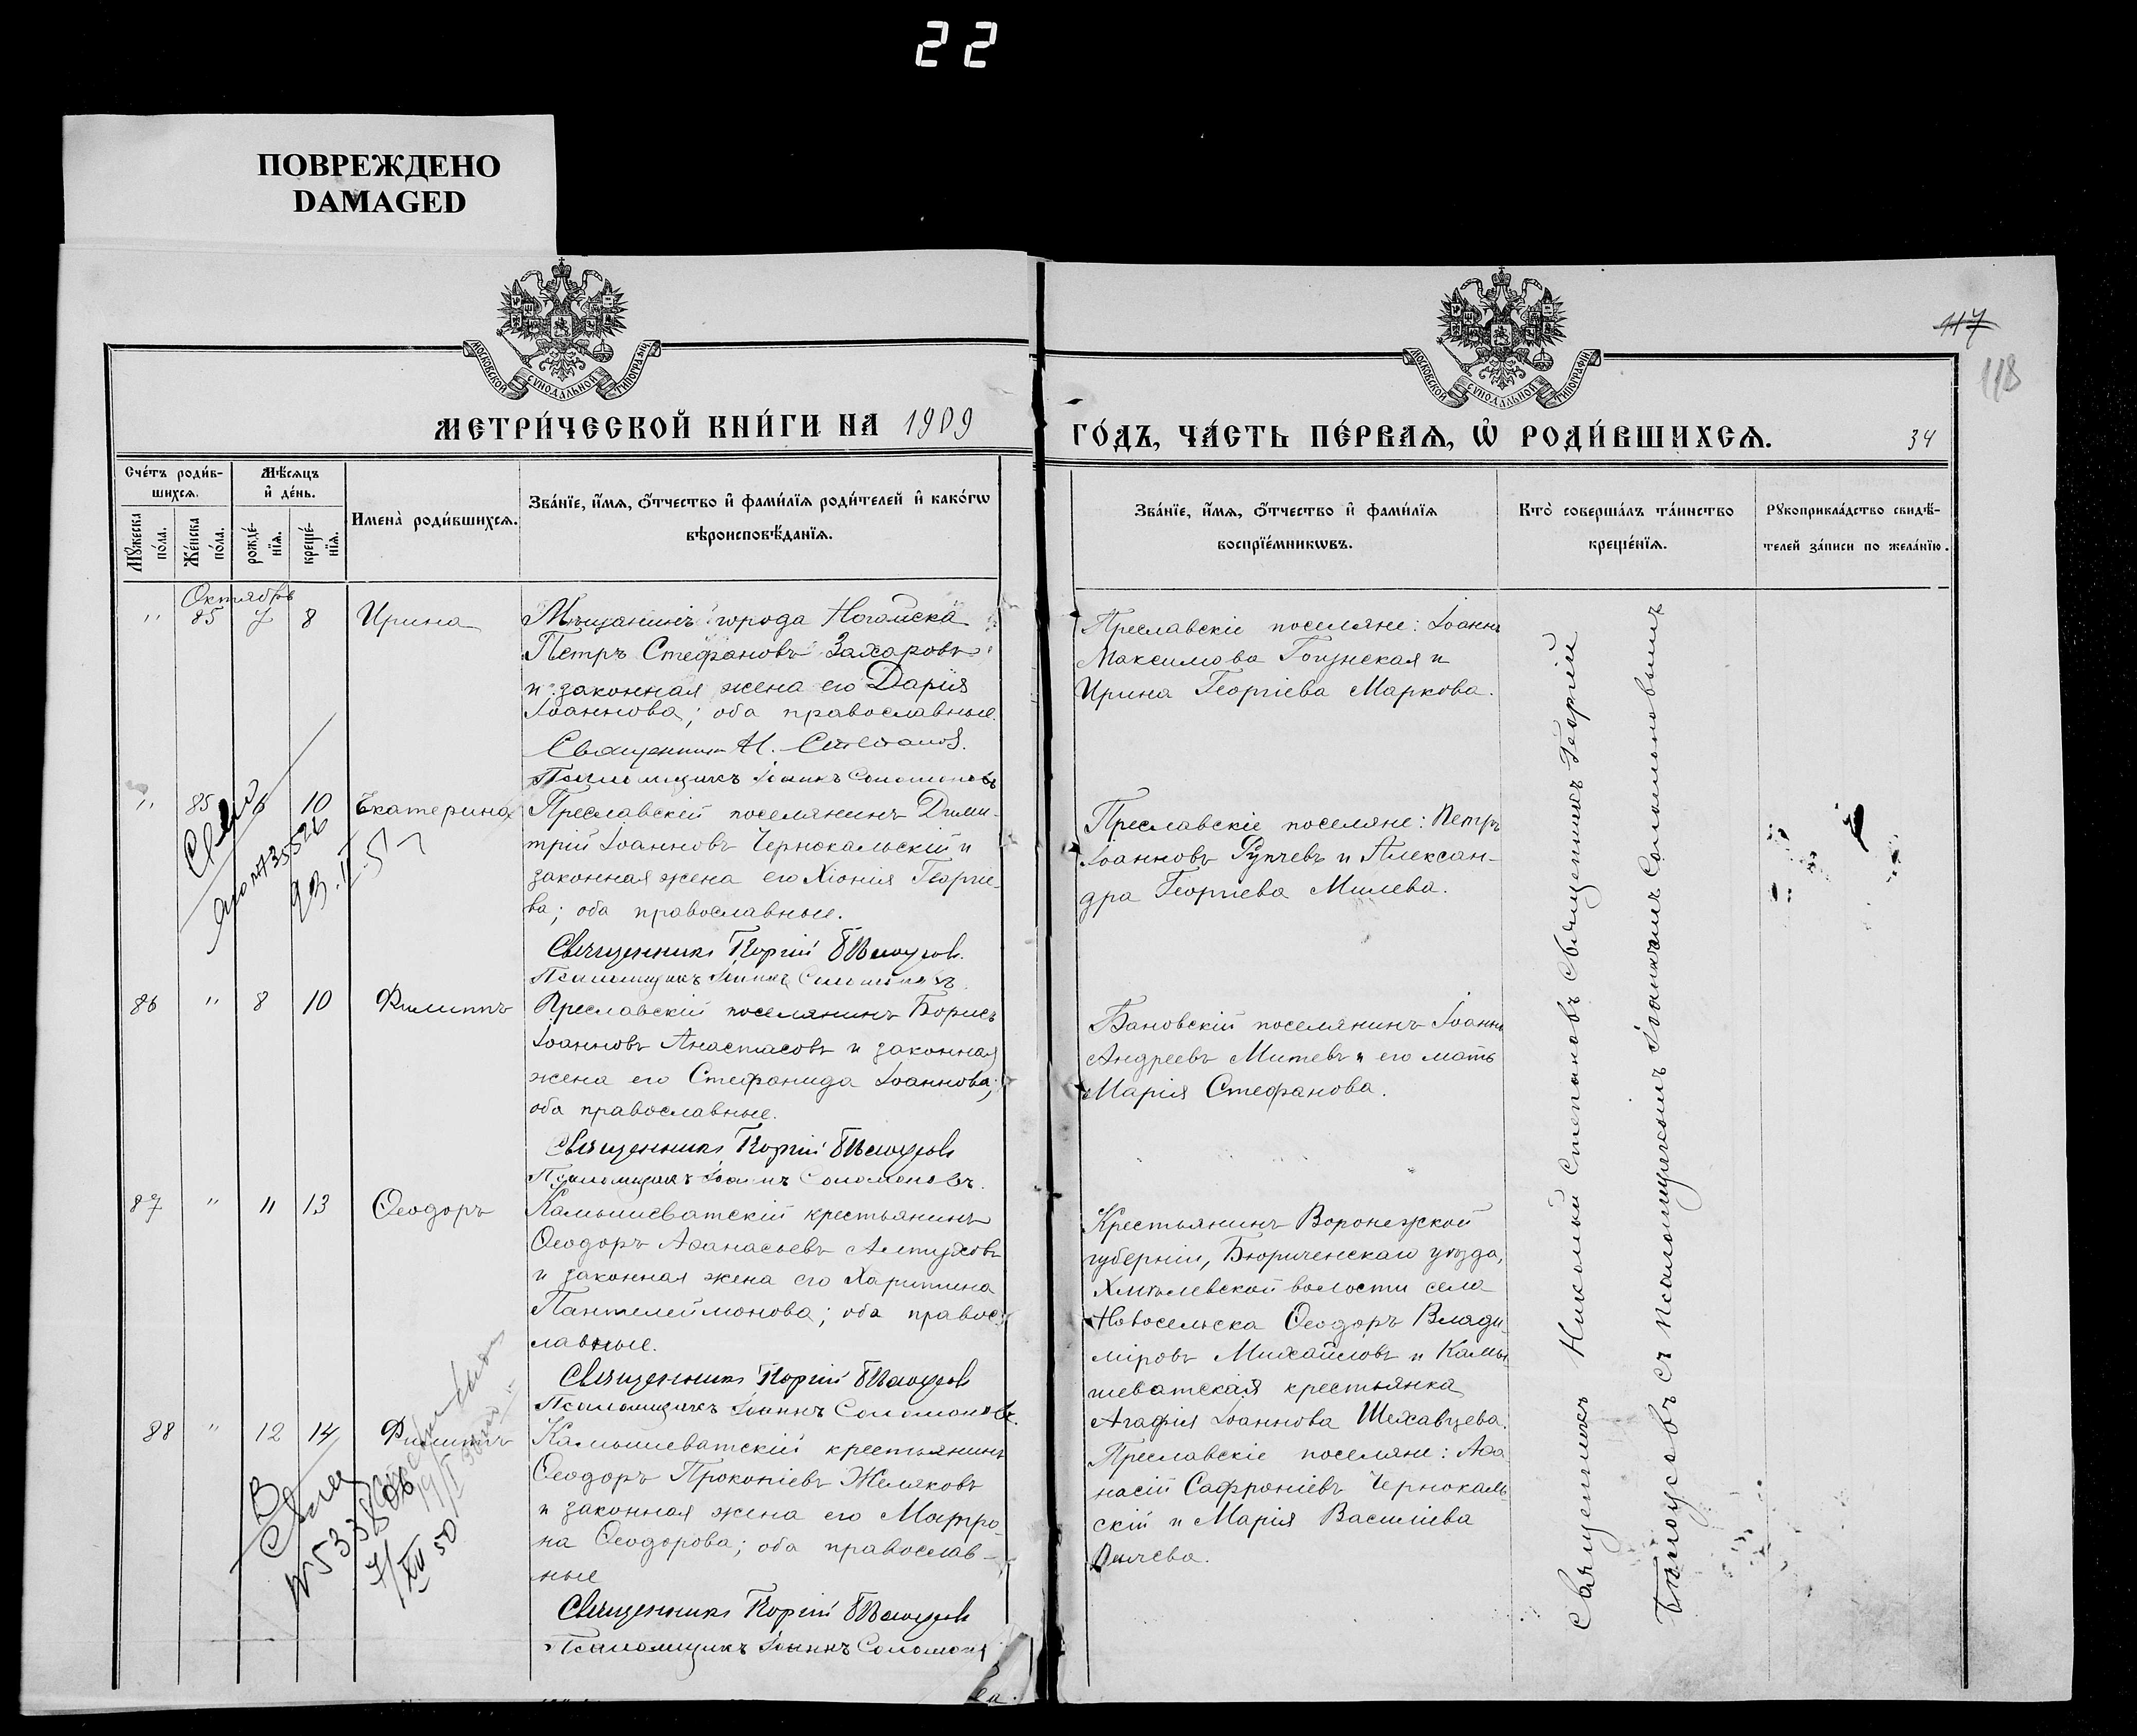 22
ПОВРЕЖДЕНО
DAMAGED
МОСКОВСКОЙ СѴНОДАЛЬНОЙ ТИПОГРАФІИ
МОСКОВСКОЙ СѴНОДАЛЬНОЙ ТИПОГРАФІИ
117
118
МЕТРИ́ЧЕСКОЙ КНИ́ГИ НА 1909
ГО́ДЪ, ЧА́СТЬ ПЕ́РВАѦ, Ѡ҆ РОДИ́ВШИХСѦ.
34
Сче́тъ роди́в-
шихсѧ.
Мѣ́сѧцъ
и҆ де́нь.
Мꙋ́жеска по́ла.
Же́нска по́ла.
рожде́-
нїѧ.
креще́-
нїѧ.
Имена̀ роди́вшихсѧ.
Зва́нїе, и҆́мѧ, ѻ҆́тчество и҆ фами́лїѧ роди́телей и҆ како́гѡ
вѣроисповѣ́данїѧ.
Зва́нїе, и҆́мѧ, ѻ҆́тчество и҆ фами́лїѧ
воспрїе́мникѡвъ.
Кто̀ соверша́лъ та́инство
креще́нїѧ.
Рꙋкоприкла́дство свидѣ́-
телей за́писи по жела́нїю.
Октябрь
" 85 7 8 Ирина
Мѣщанинъ города Ногайска
Петръ Стефановъ Захаровъ
и законная жена его Дарія
Іоаннова; оба православные.
Священник Н. Степанов.
Псаломщикъ Іоаннъ Соломоновъ
Преславскіе поселяне: Іоанна
Максимова
Ирина Георгіева Маркова.
" 85 10 Екатерина
Преславскій поселянинъ Дими-
трій Іоанновъ Чернокальскій и
законная жена его Хіонія Георгіе-
ва; оба православные.
Священникъ Георгій Бѣлоусов.
Псаломщикъ Іоаннъ Соломоновъ.
Преславскіе поселяне: Петръ
Іоанновъ Рупчевъ и Алексан-
дра Георгіева Милева.
86 " 8 10 Филиппъ
Преславскій поселянинъ Борисъ
Іоанновъ Анастасовъ и законная
жена его Стефанида Іоаннова;
оба православные.
Священникъ Георгій Бѣлоусов
Псаломщикъ Іоаннъ Соломоновъ.
Бановскій поселянинъ Іоаннъ
Андреевъ Митевъ и его мать
Марія Стефанова.
87 " 11 13 Ѳеодоръ
Камышеватскій крестьянинъ
Ѳеодоръ Аѳанасьевъ Алтуховъ
и законная жена его Харитина
Пантелеймонова; оба правос-
лавные.
Священникъ Георгій Бѣлоусов
Псаломщикъ Іоаннъ Соломоновъ.
Крестьянинъ Воронежской
губерніи, Бюрюченскаго уѣзда,
Хмѣлевской волости села
Новосельска Ѳеодоръ Влади-
міровъ Михайловъ и Камы-
шеватская крестьянка
Агафія Іоаннова Шехавцева.
88 " 12 14 Филиппъ
Камышеватскій крестьянинъ
Ѳеодоръ Прокопіевъ Желяковъ
и законная жена его Матро-
на Ѳеодорова; оба православ-
ные
Священникъ Георгій Бѣлоусов
Псаломщикъ Іоаннъ Соломоно
Преславскіе поселяне: Аѳа
насій Сафроніевъ Чернокаль-
скій и Марія Василіева
Священникъ Николай Степановъ Священникъ Георгій
Бѣлоусовъ съ псаломщикомъ Іоанномъ Соломоновымъ